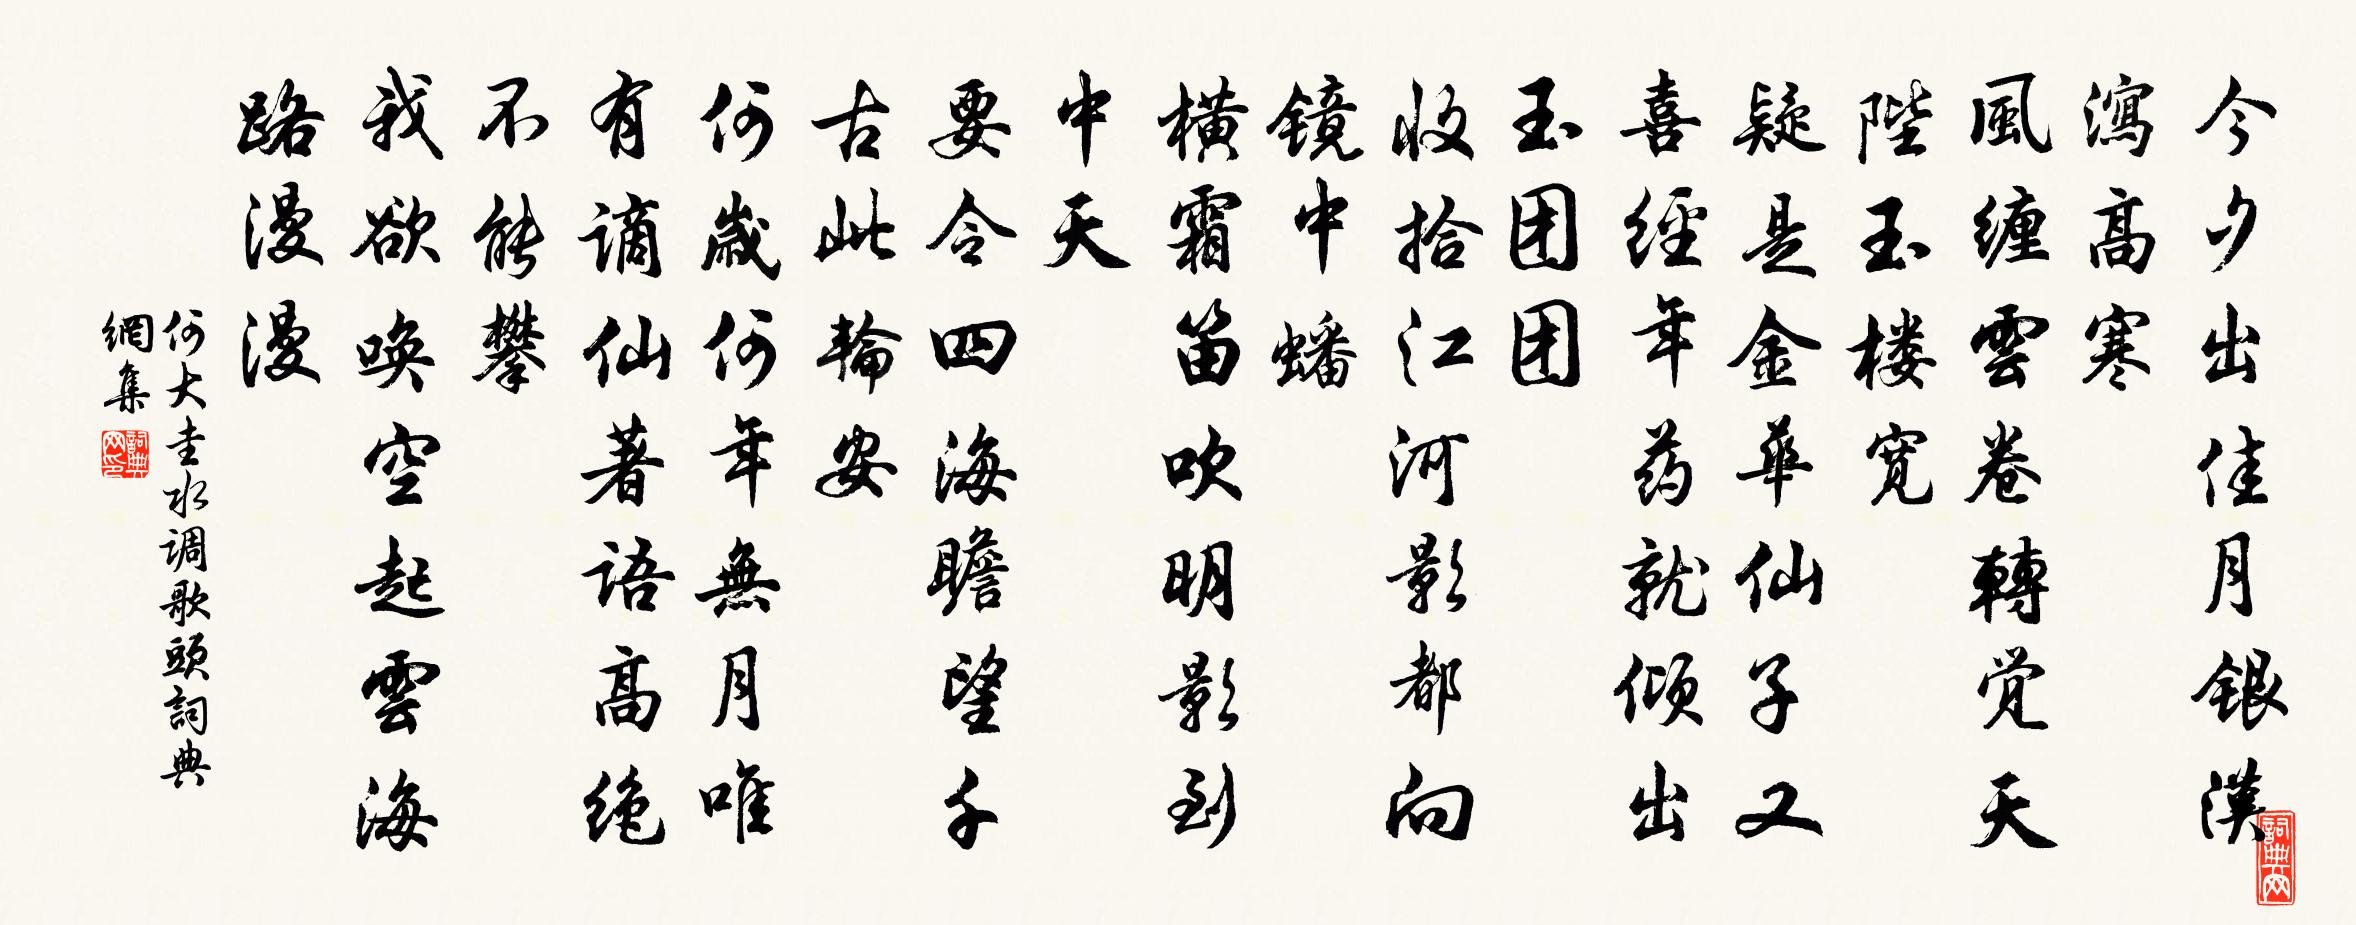 今夕出佳月銀漢
瀉高寒
風缠雲卷轉觉天
陛玉楼寛
疑是金華仙子又
喜經年药就倾出
玉团团
收拾江河影都向
镜中蟠
横霜笛吹明影到
中天
要令四海瞻望千
古此輪安
何歲何年無月唯
有谪仙著语高绝
不能攀
我欲唤空起雲海
路漫漫
何大圭水调歌頭詞典
網集
詞典网印
詞典网